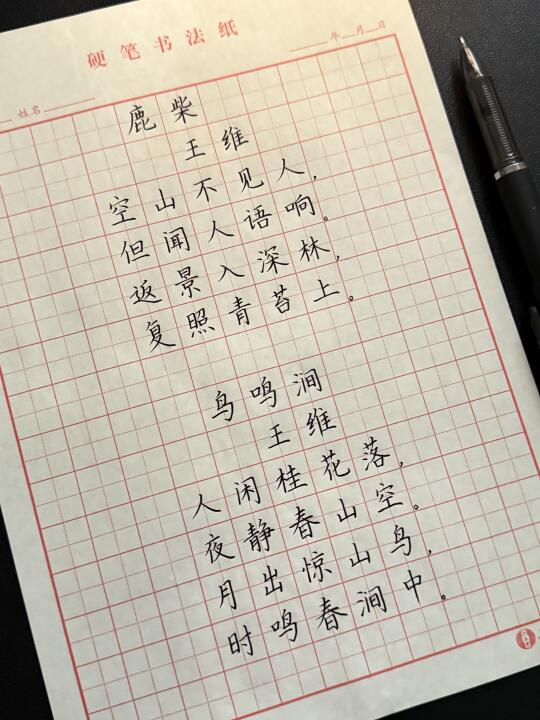 硬笔书法纸
年 月 日
姓名
鹿柴
王维
空山不见人，
但闻人语响。
返景入深林，
复照青苔上。
鸟鸣涧
王维
人闲桂花落，
夜静春山空。
月出惊山鸟，
时鸣春涧中。